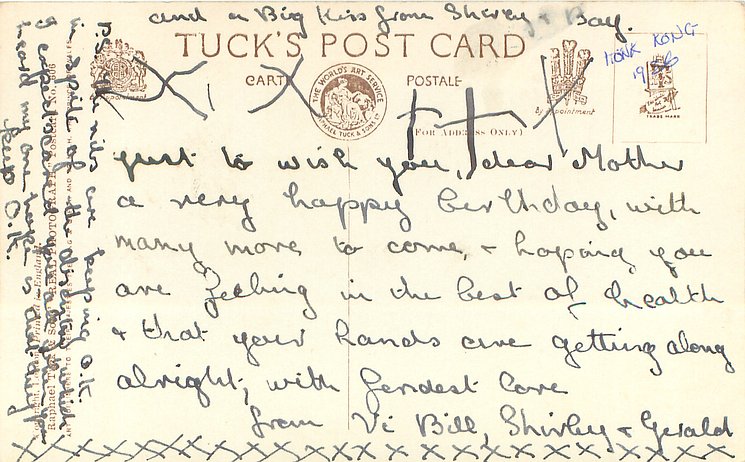 and a Big Kiss from Shirley & Boy.
TUCK'S POST CARD
CARTE POSTALE
HONK KONG
1956
By Appointment
THE WORLD'S ART SERVICE
RAPHAEL TUCK & SONS LTD
(FOR ADDRESS ONLY)
TRADE MARK
Just to wish you, dear Mother
a very happy birthday, with
many more to come, & hoping you
are feeling in the best of health
& that your hands are getting along
alright, with fondest love
from Vi Bill, Shirley & Gerald
xxxxxxxxxxxxxxxxxx
P.S. The nibs are keeping O.K.
in spite of the
I
heard my one hope is that they
keep O.K.
Raphael Tuck & Sons
REAL PHOTOGRAPH
Printed in England